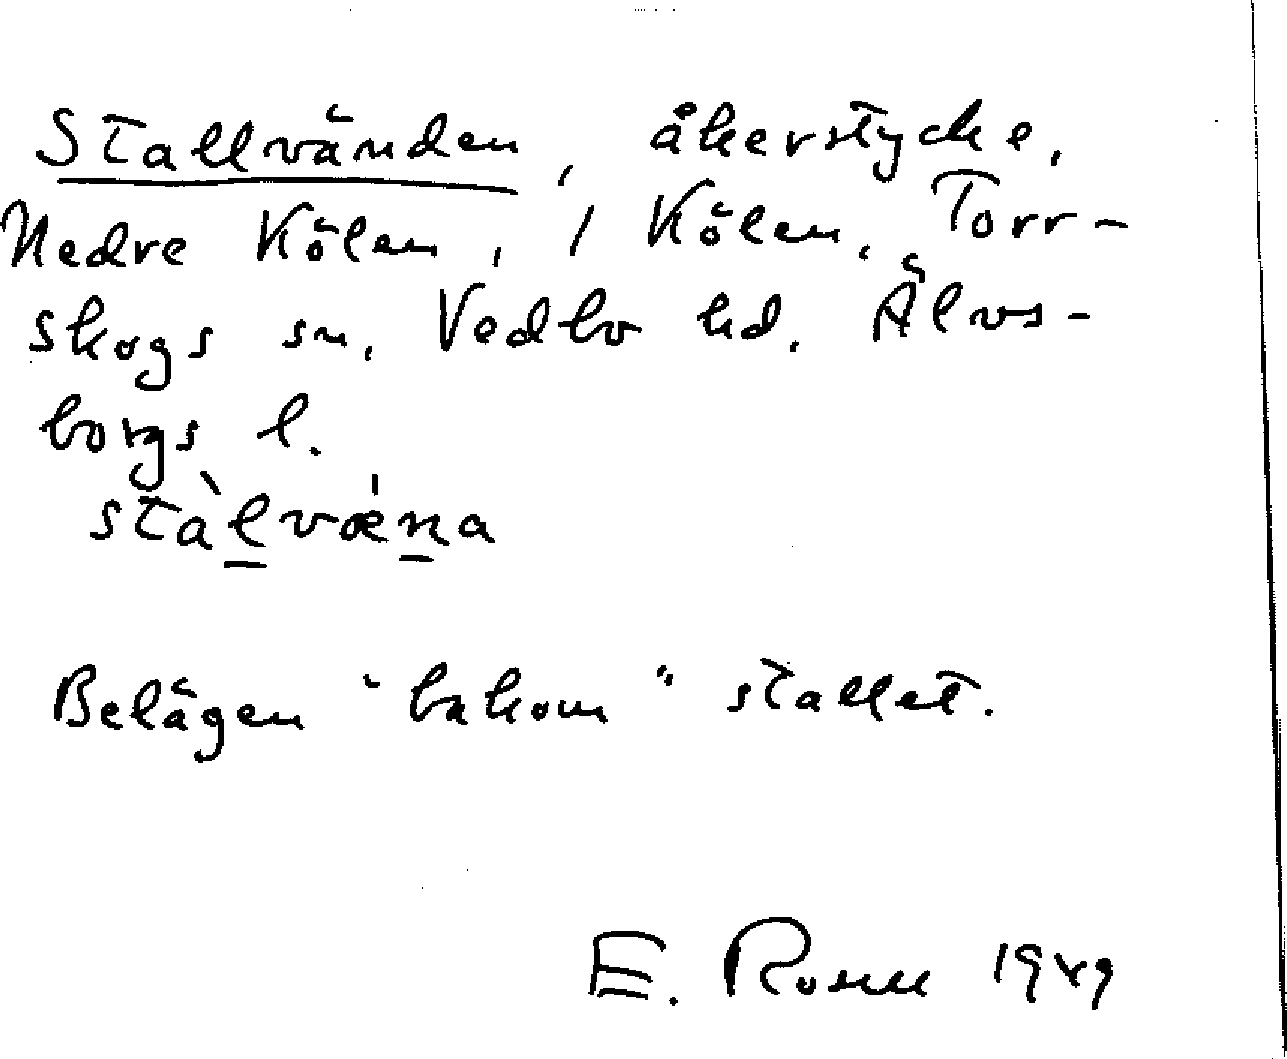 Stallvänden, åkerstycke,
Nedre Kölen, / Kölen, Torr-
skogs sn, Vedbo hd. Älvs-
borgs l.
stàlvǽna
Belägen "bakom" stallet.
E. Rosell 1949